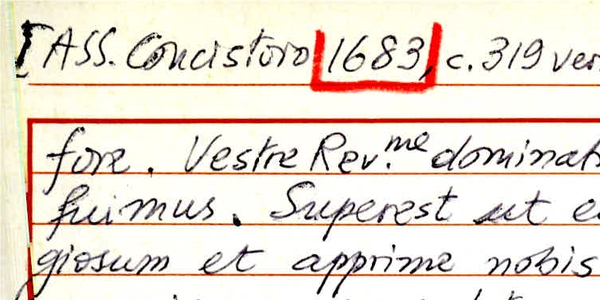 [ASS. Concistoro 1683, c. 319 ver
fore. Vestre Rev.me dominat
fuimus. Superest ut e
giosum et apprime nobis